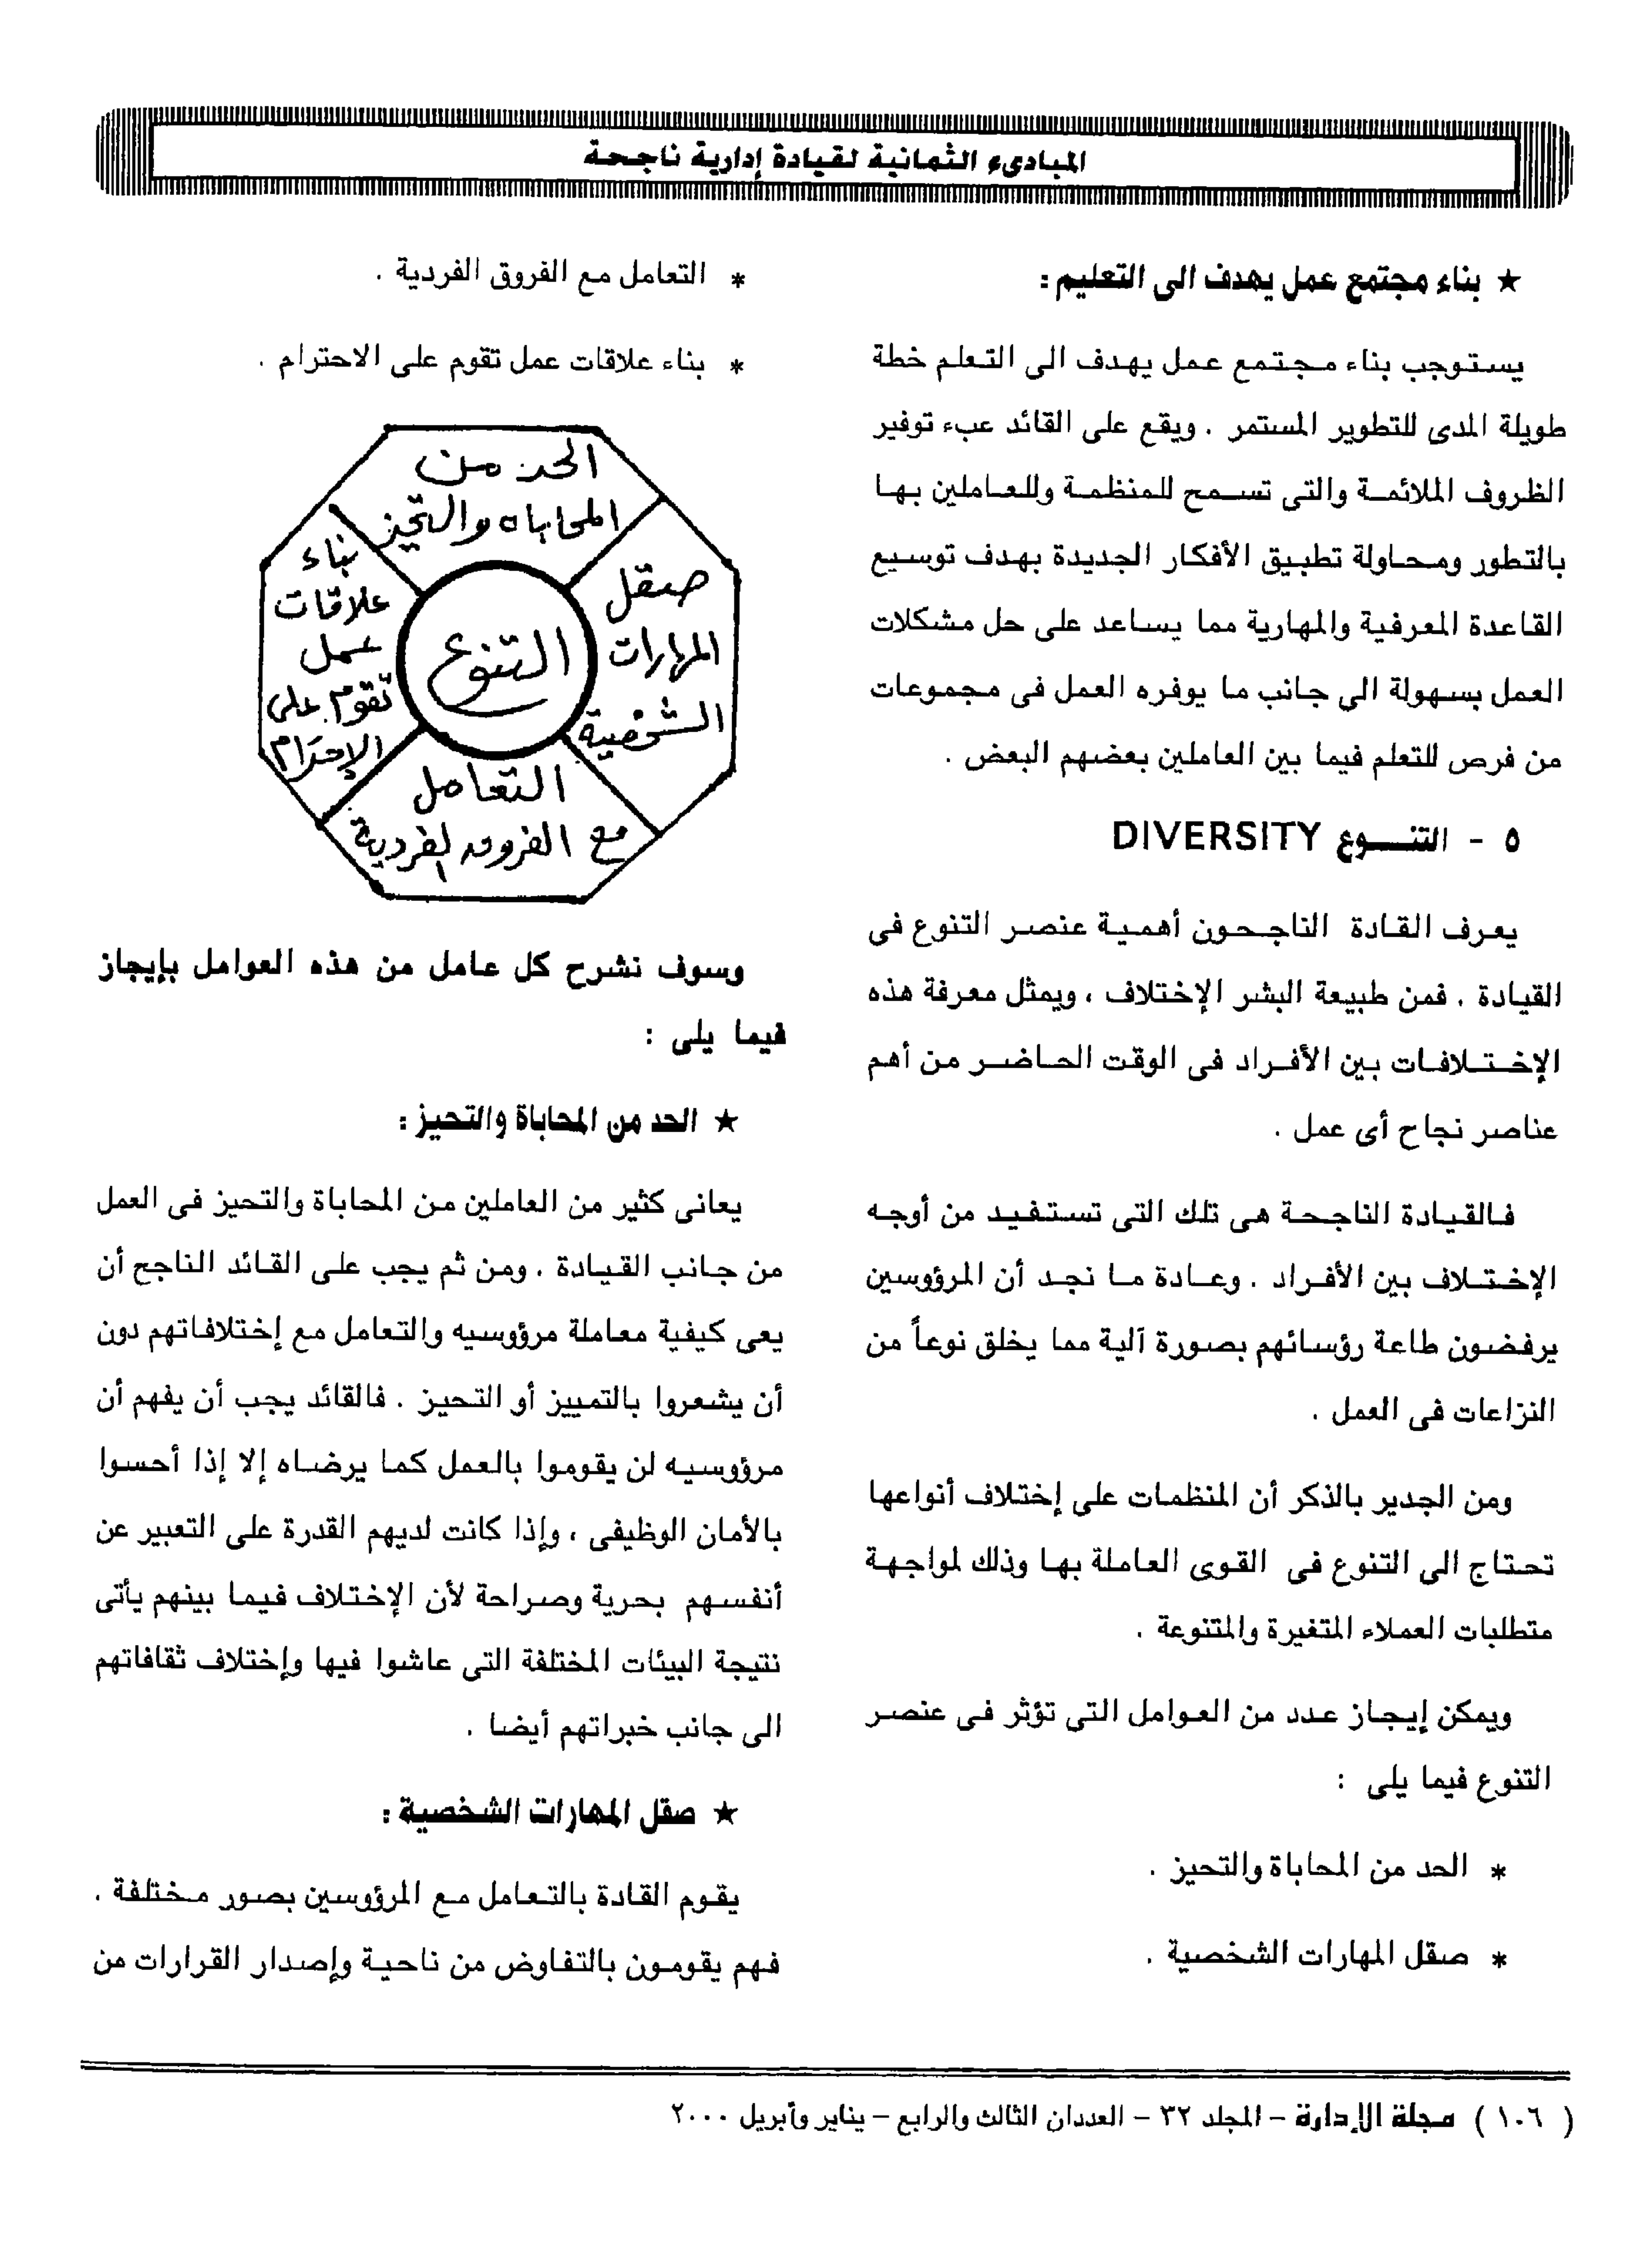 المبادىء الثمانية لقيادة إدارية ناجحة
★ بناء مجتمع عمل يهدف الى التعليم :
يستوجب بناء مجتمع عمل يهدف الى التعلم خطة
طويلة المدى للتطوير المستمر . ويقع على القائد عبء توفير
الظروف الملائمة والتى تسمح للمنظمة وللعاملين بها
بالتطور ومحاولة تطبيق الأفكار الجديدة بهدف توسيع
القاعدة المعرفية والمهارية مما يساعد على حل مشكلات
العمل بسهولة الى جانب ما يوفره العمل فى مجموعات
من فرص للتعلم فيما بين العاملين بعضهم البعض .
٥ - التنـــوع DIVERSITY
يعرف القادة الناجحون أهمية عنصر التنوع فى
القيادة . فمن طبيعة البشر الإختلاف ، ويمثل معرفة هذه
الإختلافات بين الأفراد فى الوقت الحاضر من أهم
عناصر نجاح أى عمل .
فالقيادة الناجحة هى تلك التى تستفيد من أوجه
الإختلاف بين الأفراد . وعادة ما نجد أن المرؤوسين
يرفضون طاعة رؤسائهم بصورة آلية مما يخلق نوعاً من
النزاعات فى العمل .
ومن الجدير بالذكر أن المنظمات على إختلاف أنواعها
تحتاج الى التنوع فى القوى العاملة بها وذلك لمواجهة
متطلبات العملاء المتغيرة والمتنوعة .
ويمكن إيجاز عدد من العوامل التى تؤثر فى عنصر
التنوع فيما يلى :
* الحد من المحاباة والتحيز .
* صقل المهارات الشخصية .
* التعامل مع الفروق الفردية .
* بناء علاقات عمل تقوم على الاحترام .
الحد من
المحاباه والتحيز
صقل
المهارات
الشخصية
التعامل
مع الفروق الفردية
بناء
علاقات
عمل
تقوم على
الإحترام
التنوع
وسوف نشرح كل عامل من هذه العوامل بإيجاز
فيما يلى :
★ الحد من المحاباة والتحيز :
يعانى كثير من العاملين من المحاباة والتحيز فى العمل
من جانب القيادة . ومن ثم يجب على القائد الناجح أن
يعى كيفية معاملة مرؤوسيه والتعامل مع إختلافاتهم دون
أن يشعروا بالتمييز أو التحيز . فالقائد يجب أن يفهم أن
مرؤوسيه لن يقوموا بالعمل كما يرضاه إلا إذا أحسوا
بالأمان الوظيفى ، وإذا كانت لديهم القدرة على التعبير عن
أنفسهم بحرية وصراحة لأن الإختلاف فيما بينهم يأتى
نتيجة البيئات المختلفة التى عاشوا فيها وإختلاف ثقافاتهم
الى جانب خبراتهم أيضا .
★ صقل المهارات الشخصية :
يقوم القادة بالتعامل مع المرؤوسين بصور مختلفة .
فهم يقومون بالتفاوض من ناحية وإصدار القرارات من
( ١٠٦ ) مجلة الإدارة - المجلد ٣٢ - العددان الثالث والرابع - يناير وأبريل ٢٠٠٠